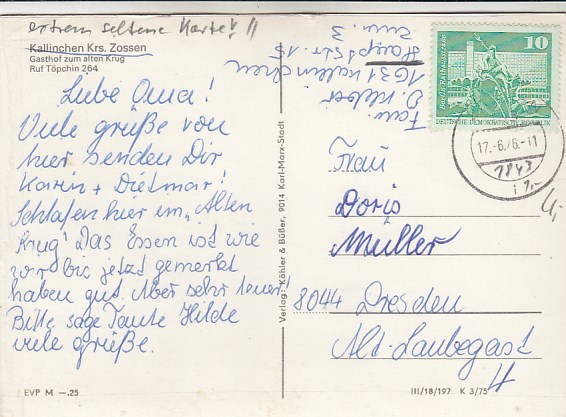 extrem seltene Karte! !!
Kallinchen Krs. Zossen
Gasthof zum alten Krug
Ruf Töpchin 264
Liebe Oma!
Viele grüße von
hier senden Dir
Karin + Dietmar!
Schlafen hier im „Alten
Krug" Das Essen ist wie
wir bis jetzt gemerkt
haben gut. Aber sehr teuer.
Bitte sage Tante Hilde
viele grüße.
EVP M —.25
Verlag: Köhler & Büßer, 9014 Karl-Marx-Stadt
Fam.
D.
1631 Kallinchen
Hauptstr. 15
Zim. 3
10
Berlin, Rathausstraße
DEUTSCHE DEMOKRATISCHE REPUBLIK
17.-6.76.-11
1843
Frau
Doris
Müller
8044 Dresden
Alt-Laubegast
III/18/197 K 3/75